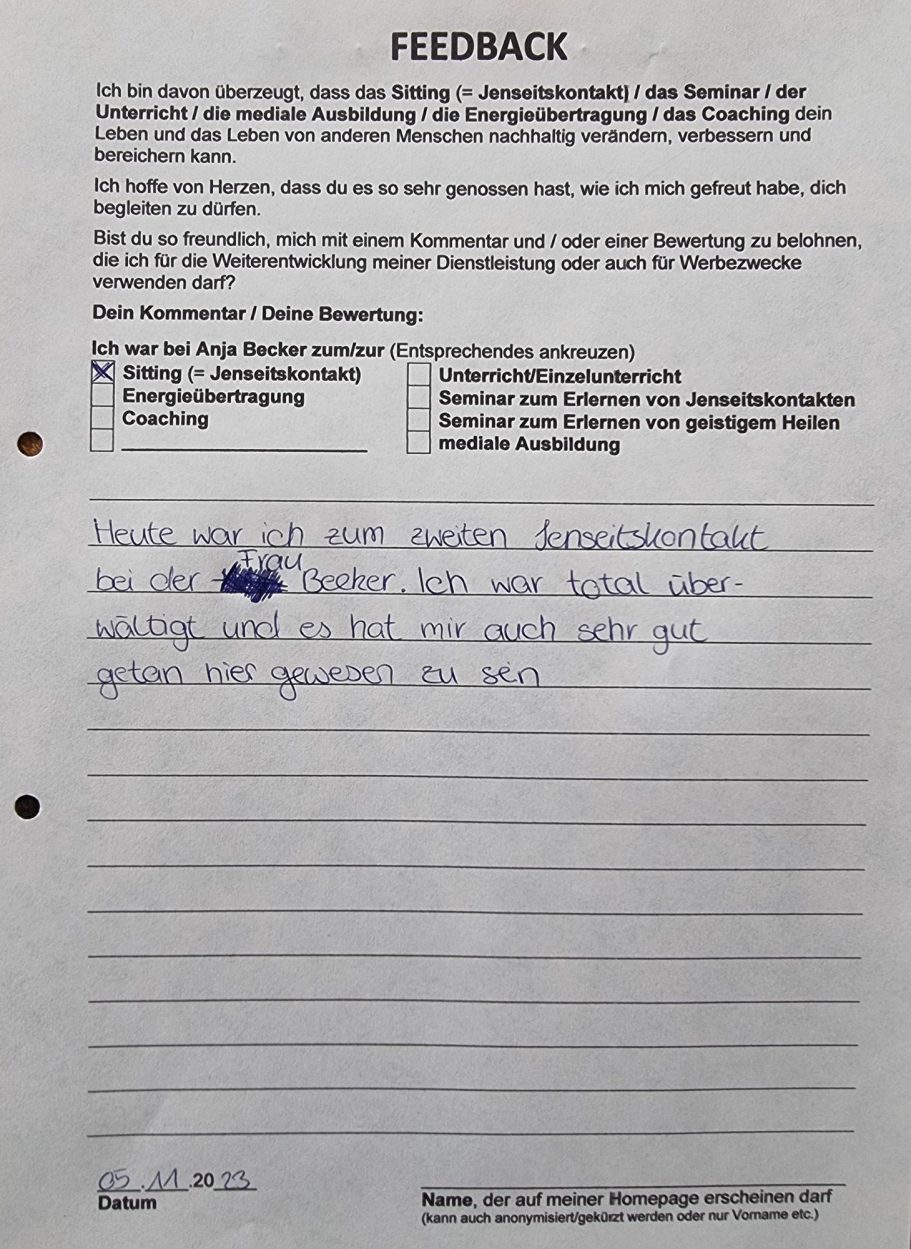 FEEDBACK
Ich bin davon überzeugt, dass das Sitting (= Jenseitskontakt) / das Seminar / der
Unterricht / die mediale Ausbildung / die Energieübertragung / das Coaching dein
Leben und das Leben von anderen Menschen nachhaltig verändern, verbessern und
bereichern kann.
Ich hoffe von Herzen, dass du es so sehr genossen hast, wie ich mich gefreut habe, dich
begleiten zu dürfen.
Bist du so freundlich, mich mit einem Kommentar und / oder einer Bewertung zu belohnen,
die ich für die Weiterentwicklung meiner Dienstleistung oder auch für Werbezwecke
verwenden darf?
Dein Kommentar / Deine Bewertung:
Ich war bei Anja Becker zum/zur (Entsprechendes ankreuzen)
Sitting (= Jenseitskontakt)
Energieübertragung
Coaching
Unterricht/Einzelunterricht
Seminar zum Erlernen von Jenseitskontakten
Seminar zum Erlernen von geistigem Heilen
mediale Ausbildung
Heute war ich zum zweiten Jenseitskontakt
bei der Frau Becker. Ich war total über-
wältigt und es hat mir auch sehr gut
getan hier gewesen zu sein
05.11.2023
Datum
Name, der auf meiner Homepage erscheinen darf
(kann auch anonymisiert/gekürzt werden oder nur Vorname etc.)